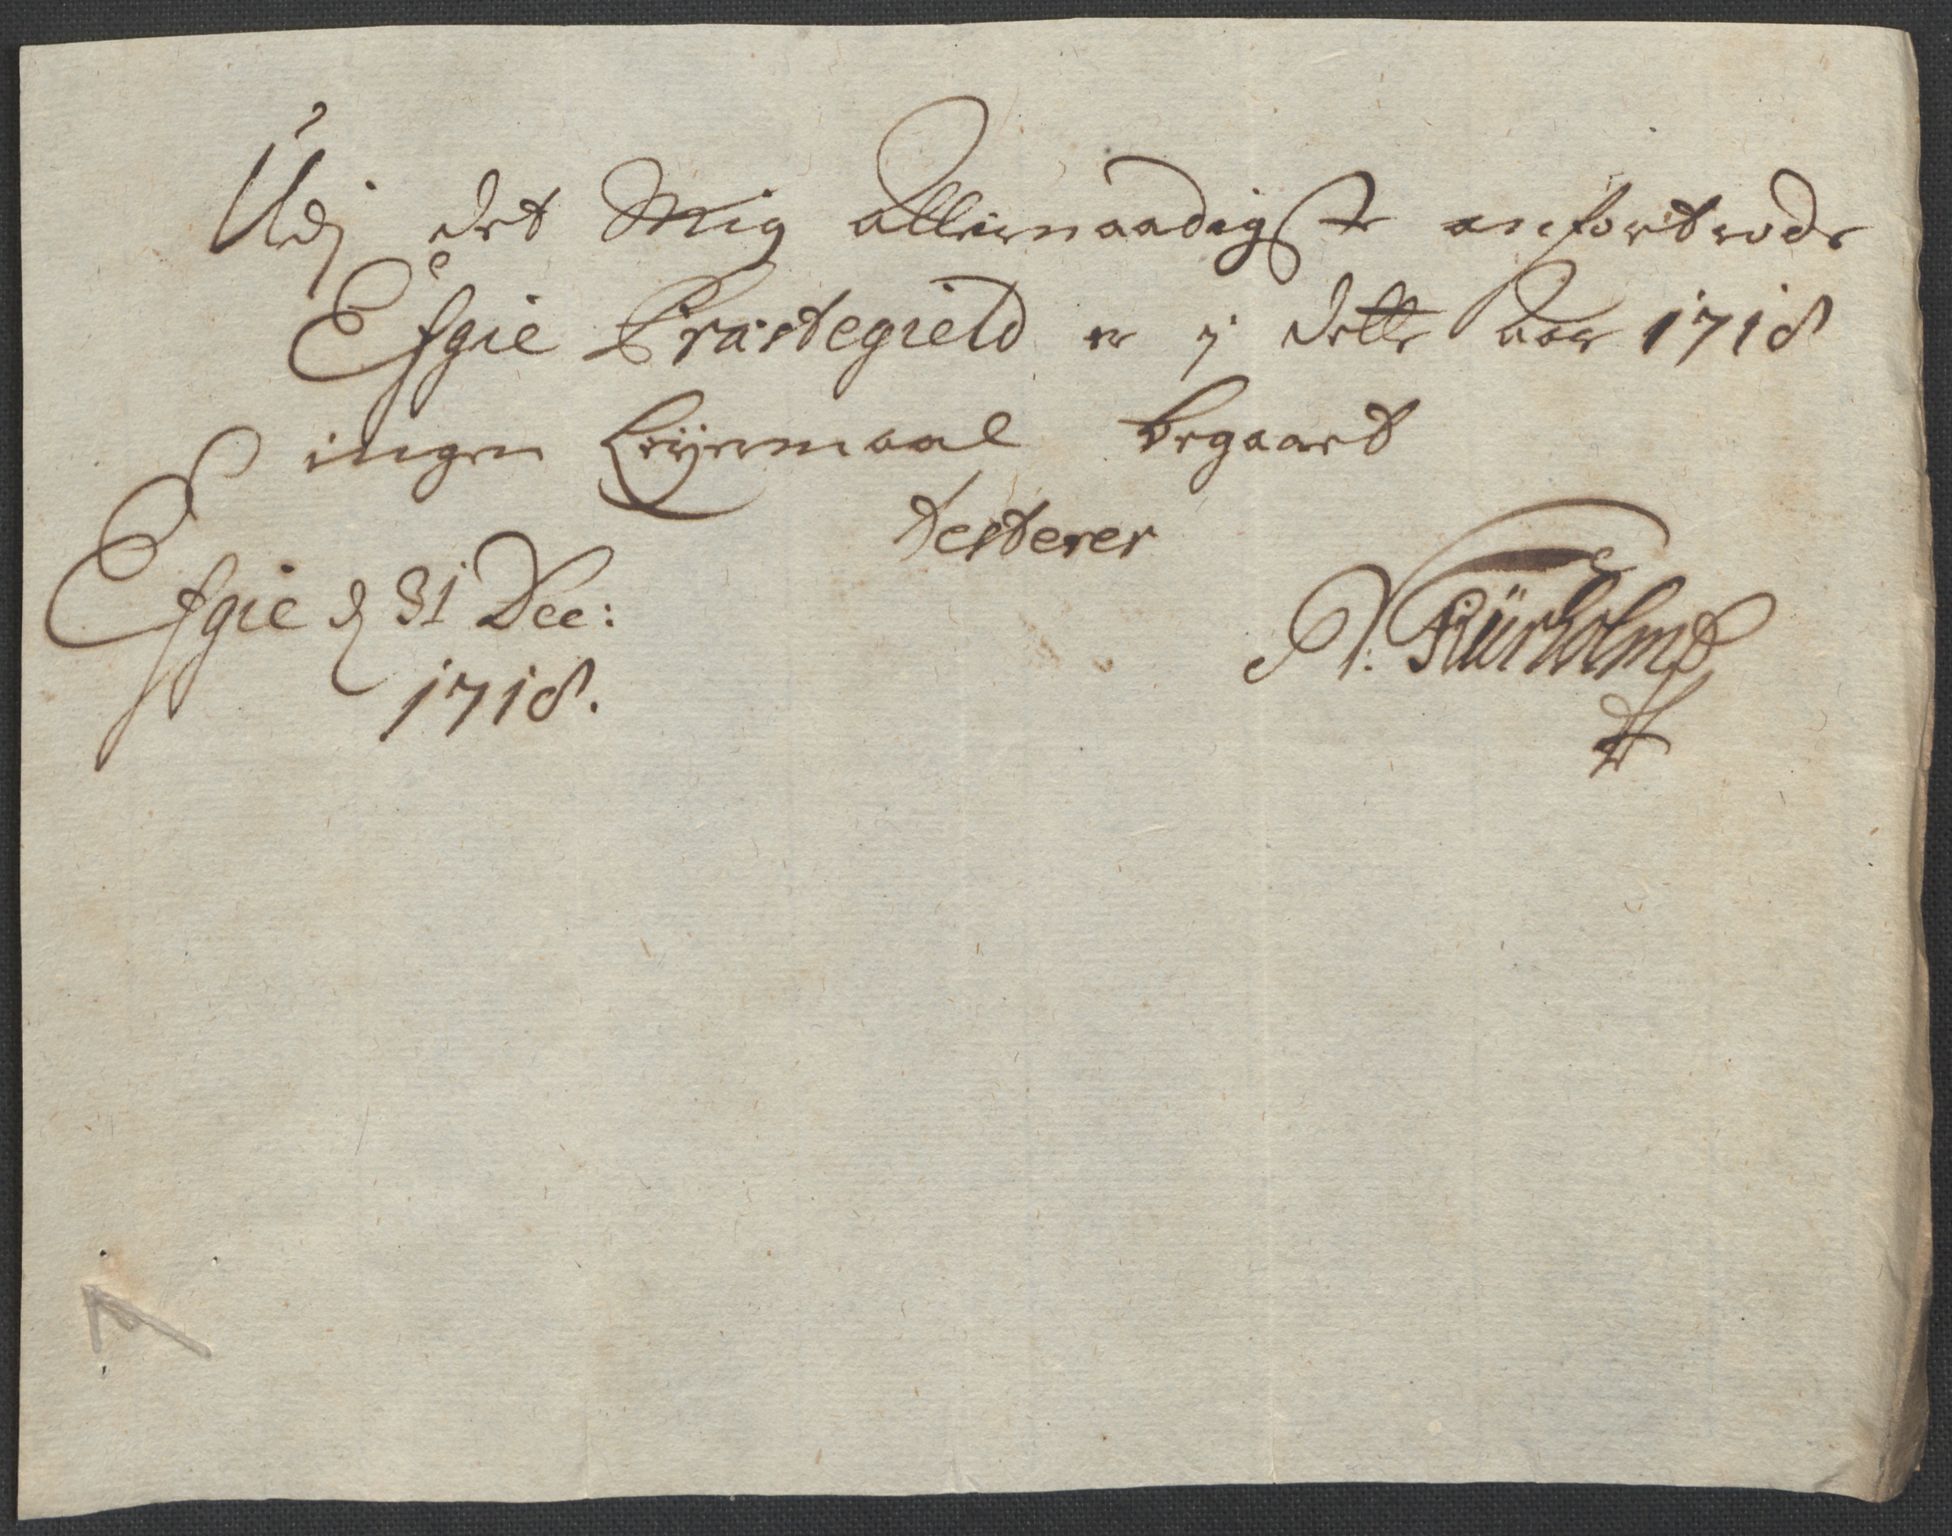 Udj det Mig allernaadigste anfortrode
Efgie Præstegield er j dette Aar 1718
ingen Leyermaal begaaet
testerer
Efgie d 31 Dec:
1718.